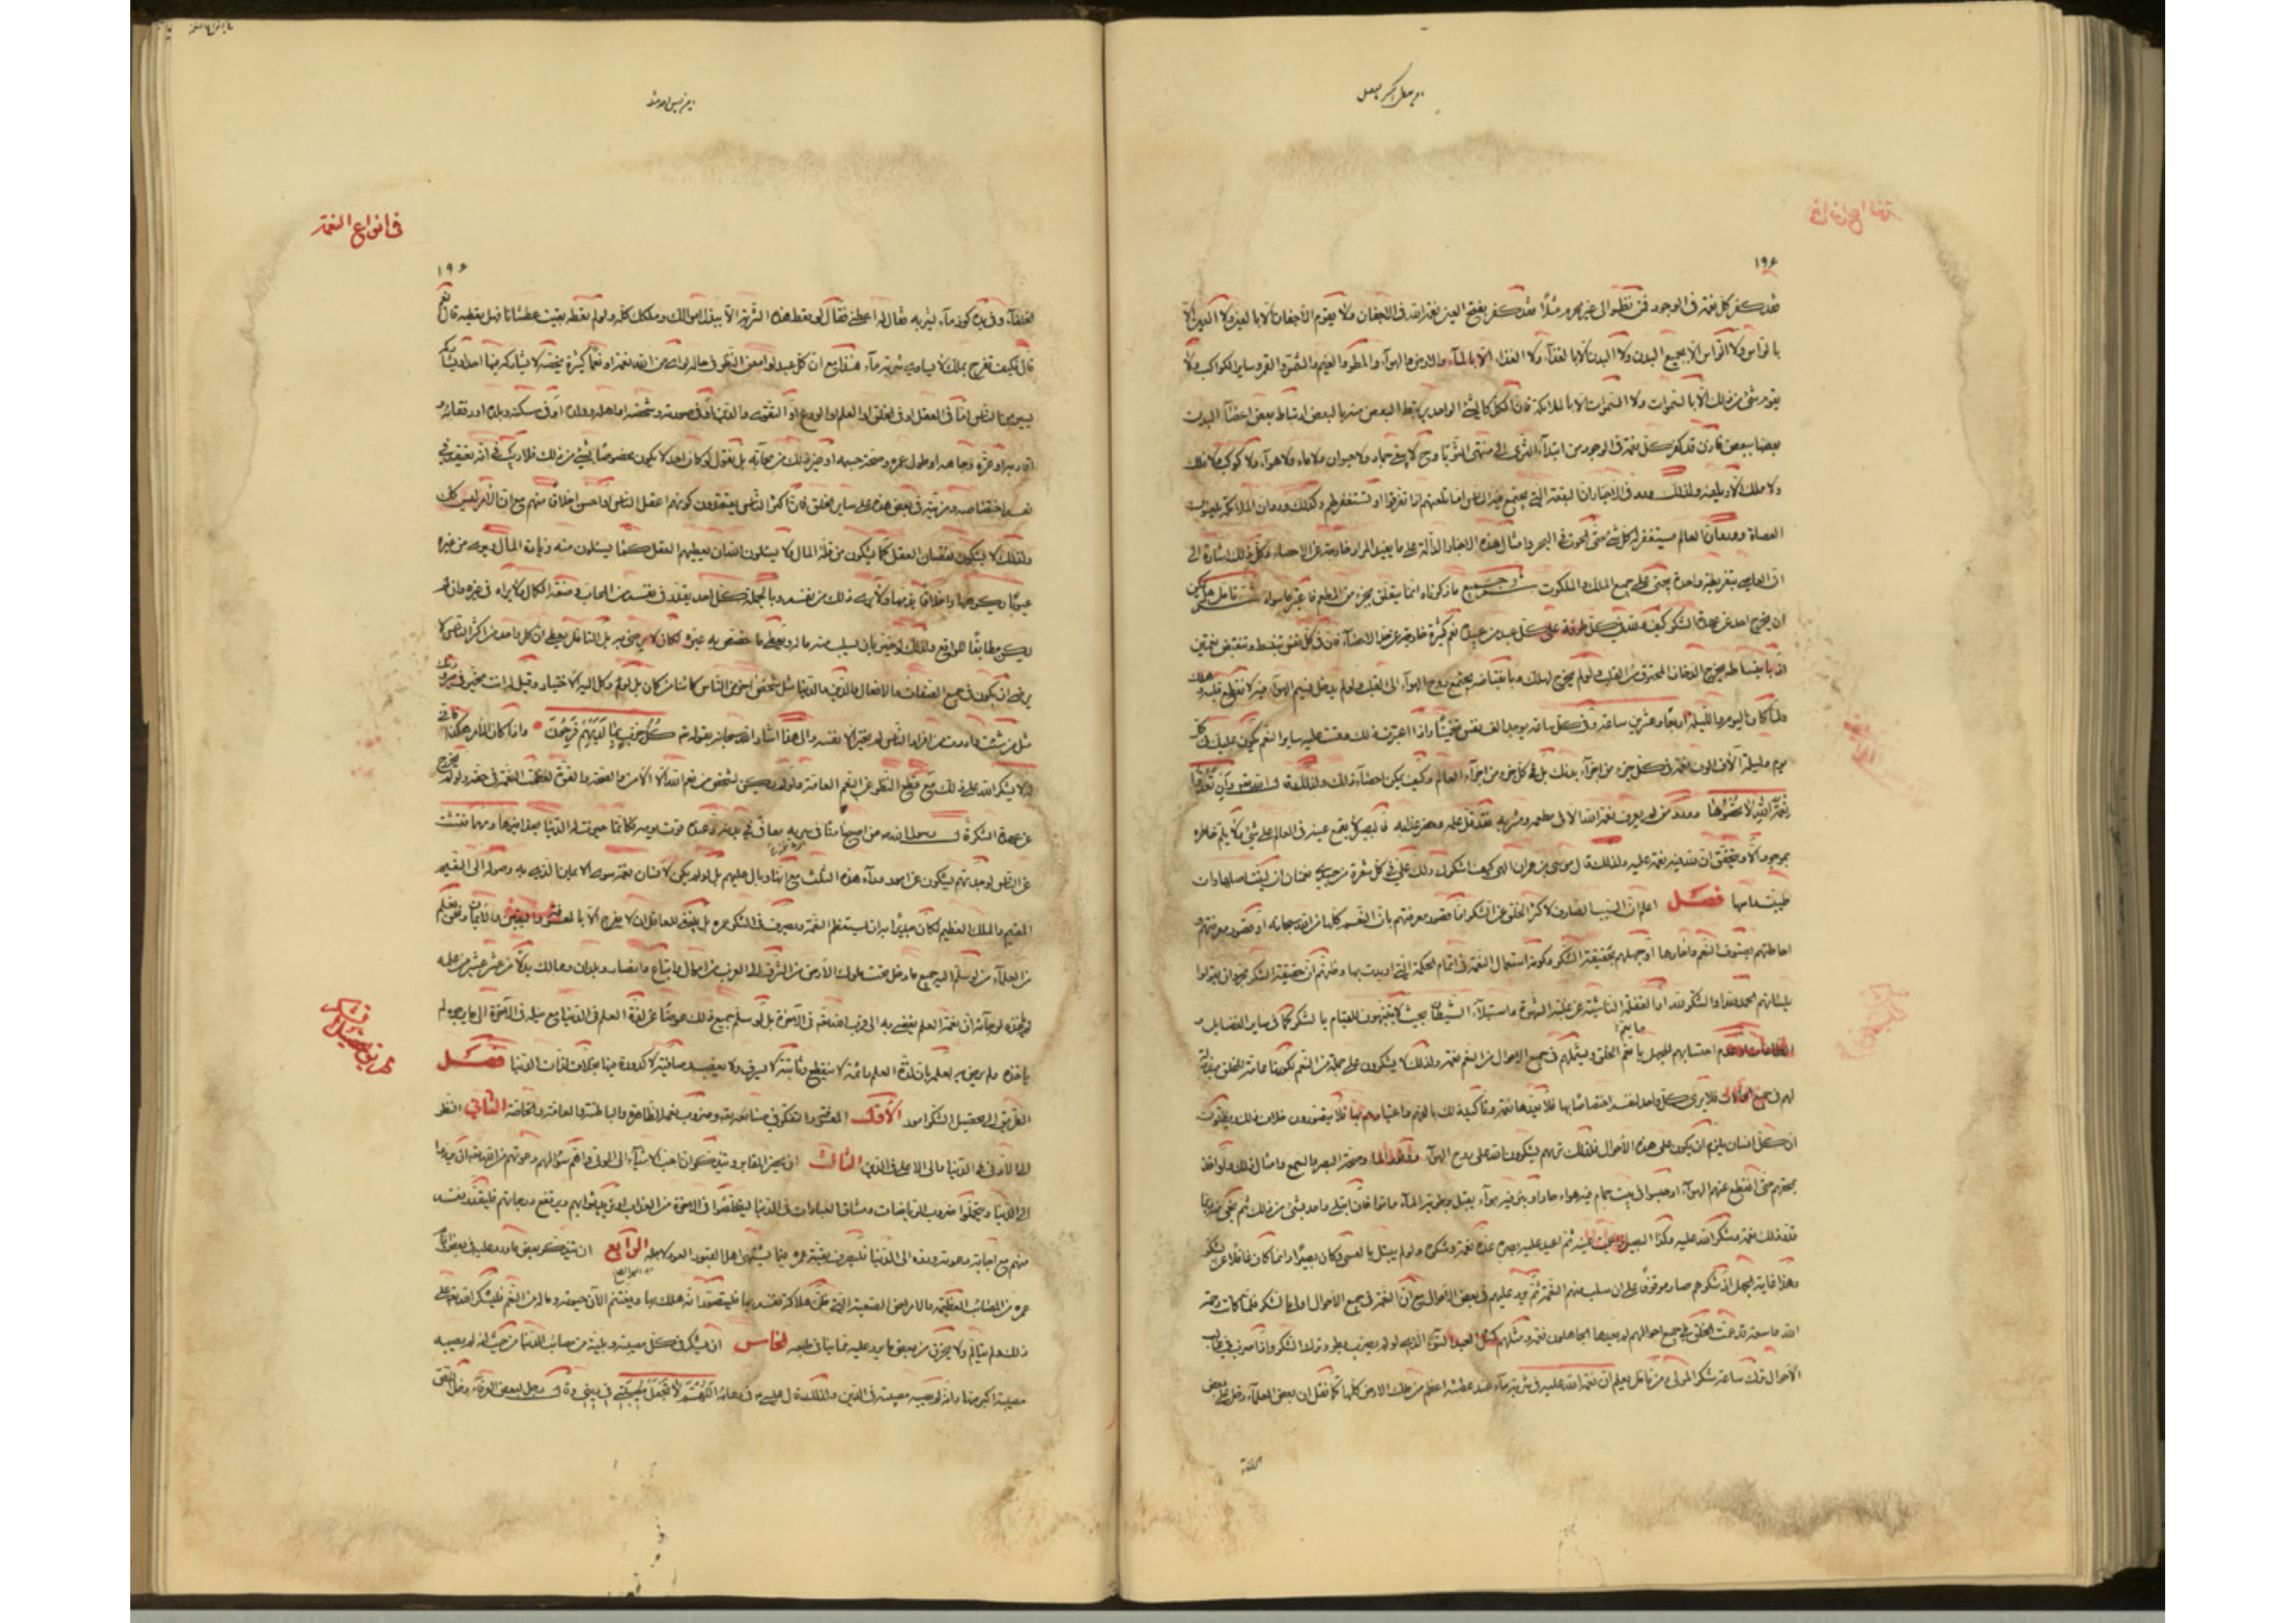 ١٩۶
فقد كفر كل نعمة في الوجود فمن نظر الى غير محرم مثلا فقد كفر بفتح العين نعمة الله في الاجفان ولا يقوم الأجفان الا بالعين ولا العين الا
بالرأس ولا الرأس الا بجميع البدن ولا البدن الا بالغذاء ولا الغذاء الا بالماء والارض والهواء والمطر والغيم والشمس والقمر وساير الكواكب ولا
يقوم شئ من ذلك الا بالسموات ولا السموات الا بالملائكة فان الكل كالشئ الواحد يرتبط البعض منه بالبعض ارتباط بعض اعضاء البدن
بعضها ببعض فاذن قد كفر كل نعمة في الوجود من ابتداء الثرى الى منتهى الثريا وح لا يبقى جماد ولا حيوان ولا ماء ولا هواء ولا كوكب ولا فلك
ولا ملك الا ويلعنه ولذلك ورد في الاخبار ان البقعة التي يجتمع فيها الناس اما تلعنهم اذا تفرقوا او تستغفر لهم وكذلك ورد ان الملائكة يلعنون
العصاة وورد ان العالم يستغفر له كل شئ حتى الحوت في البحر وامثال هذه الاخبار الدالة على ما يفيد المراد خارجة عن الاحصاء وكل ذلك اشارة الى
ان العاصي بتطريفة واحدة يجني على جميع الملك والملكوت وجميع ما ذكرناه انما يتعلق بجزء من المطعم فاعتبر ما سواه ثم تأمل هل يمكن
ان يخرج احد عن عهدة الشكر كيف ولله في كل طرفة على كل عبد من عبيده نعم كثيرة خارجة عن حد الاحصاء فان في كل نفس ينبسط وينقبض نعمتين
اذ بانبساطه يخرج الدخان المحترق من القلب ولو لم يخرج لهلك وبانقباضه يجتمع روح الهواء الى القلب ولو لم يدخل نسيم الهواء فيه لانقطع قلبه وهلك
ولما كان اليوم والليلة اربعا وعشرين ساعة وفي كل ساعة يوجد الف نفس تخمينا واذا اعتبرت ذلك وقست عليه ساير النعم يكون عليك في كل
يوم وليلة الاف الوف نعمة في كل جزء من اجزاء بدنك بل في كل جزء من اجزاء العالم وكيف يمكن احصاء ذلك ولذلك قال الله تعالى وان تعدوا
نعمة الله لا تحصوها وورد من لم يعرف نعمة الله الا في مطعمه ومشربه فقد قل علمه وحضر عذابه فالبصير لا يقع عينه في العالم على شئ ولا يلم خاطره
بموجود الا ويتحقق ان لله فيه نعمة عليه ولذلك قال موسى بن عمران الهي كيف اشكرك ولك علي في كل شعرة من جسدي نعمتان ان لينت اصلها وان
طمست راسها فصل اعلم ان السبب الصارف لاكثر الخلق عن الشكر اما قصور معرفتهم بان النعم كلها من الله سبحانه او قصور معرفتهم و
احاطتهم بصنوف النعم واحادها او جهلهم بحقيقة الشكر وكونه استعمال النعمة في اتمام الحكمة التي اريدت بها وظنهم ان حقيقة الشكر مجرد ان يقولوا
بلسانهم الحمد لله او الشكر لله او الغفلة الناشئة عن غلبة الشهوة واستيلاء الشيطان بحيث لا يتنبهون للقيام بالشكر كما في ساير الفضايل و
الطاعات او عدم احتسابهم لجهل ما يعم الخلق ويشملهم في جميع الاحوال من النعم نعمة ولذلك لا يشكرون على جملة من النعم لكونها عامة للخلق مبذولة
لهم في جميع الحالات فلا يرى كل واحد لنفسه اختصاصا بها فلا يعدها نعمة وتأكيد ذلك بالفهم واعتيادهم بها فلا يتصورون خلاف ذلك ويظنون
ان كل انسان يلزم ان يكون على هذه الاحوال فلذلك تريهم لا يشكرون الله على روح الهواء ووفور الماء وصحة البصر والسمع وامثال ذلك ولو اخذ
بمخنقهم حتى انقطع عنهم الهواء او حبسوا في بيت حمام فيه هواء حار او بئر فيه هواء ثقيل برطوبة الماء ماتوا فان ابتلى واحد بشئ من ذلك ثم نجى ربما
قدر ذلك نعمة وشكر الله عليه وهكذا البصير اذا عميت عينه ثم اعيد عليه بصره عده نعمة وشكره ولو لم يبتل بالعمى وكان بصيرا دائما كان غافلا عن الشكر
وهذا غاية الجهل اذ شكرهم صار موقوفا على ان يسلب منهم النعمة ثم يرد عليهم في بعض الاحوال مع ان النعمة في جميع الاحوال اولى بالشكر فلما كانت رحمة
الله واسعة قد عمت الخلق في جميع احوالهم لم يعدها الجاهلون نعمة ومثلهم كمثل العبد السوء الذي لو لم يضرب بطر وترك الشكر واذا ضرب في غالب
الاحوال ترك ساعة شكر المولى ومن تأمل يعلم ان نعمة الله عليه في شربة ماء عند عطشه اعظم من ملك الارض كلها كما نقل ان بعض العلماء دخل على بعض
الخلفاء
في انواع النعمة
١٩۶
الخلفاء وفي يده كوز ماء يشربه فقال له اعظني فقال لو لم تعط هذه الشربة الا ببذل اموالك وملكك كله ولو لم تعط بقيت عطشانا فهل تعطيه قال نعم
قال فكيف تفرح بملك لا يساوي شربة ماء هذا مع ان كل عبد لو امعن النظر في حاله لراى من الله نعمة او نعما كثيرة يخصه لا يشاركه فيها احد او يشاركه
يسير من الناس اما في العقل او في الخلق او العلم او الورع او التقوى والدين او في صورته وشخصه او اهله وولده او في مسكنه وبلده او رفقائه و
اقاربه او عزه وجاهه او طول عمره وصحة جسمه او غير ذلك من محابه بل نقول لو كان احد لا يكون مخصوصا بشئ من ذلك فلا ريب في انه يعتقد في
نفسه اختصاصه ومزيته في بعض هذه على ساير الخلق فان اكثر الناس يعتقدون كونهم اعقل الناس او احسن اخلاقا منهم مع ان الأمر ليس كذلك
ولذلك لا يشكون لنقصان العقل كما يشكون من قلة المال ولا يسئلون الله ان يعطيهم العقل كما يسئلون منه زيادة المال ويرى من غيره
عيوبا يكرهها واخلاقا يذمها ولا يرى ذلك من نفسه وبالجملة كل احد يقدر في نفسه من المحاب وصفة الكمال ما لا يراه في غيره وان لم
يكن مطابقا للواقع ولذلك لو خير بان يسلب منه ماله ويعطى ما خصص به غيره لكان لا يرضى به بل التأمل يعطي ان كل واحد من اكثر الناس لا
يرضى ان يكون في جميع الصفات والافعال والدين والدنيا مثل شخص اخر من الناس كائنا من كان بل لو وكل اليه الاختيار وقيل له انت مخير في صيرورتك
مثل من شئت واردت من افراد الناس لم يختر الا نفسه والى هذا اشار الله سبحانه بقوله كل حزب بما لديهم فرحون واذا كان الأمر هكذا فاني
له لا يشكر الله على ذلك مع قطع النظر عن النعم العامة ولو لم يكن لشخص من نعم الله الا الامن والصحة والقوة لعظمت النعمة في حقه ولم يخرج
عن عهدة الشكر قال رسول الله من اصبح امنا في سربه معافى في بدنه وعنده قوت يومه فكانما حيزت له الدنيا بحذافيرها ومهما فتشت
عن الناس لوجدتهم يشكون عن امور وراء هذه الثلث مع انها وبال عليهم بل لو لم يكن لانسان نعمة سوى الايمان الذي به وصوله الى النعيم
المقيم والملك العظيم لكان جديرا به ان يستعظم النعمة ويصرف في الشكر عمره بل ينبغي للعاقل ان لا يفرح الا بالمعرفة واليقين والايمان ونحن نعلم
من العلماء من لو سلم اليه جميع ما دخل تحت ملوك الأرض من الشرق الى الغرب من اموال واتباع وانصار وبلدان وممالك بدلا من عشر عشير من علمه
لم يأخذه لرجائه ان نعمة العلم يفضي به الى قرب الله تعالى في الآخرة بل لو سلم جميع ذلك عوضا عن لذة العلم في الدنيا مع نيله في الآخرة الى ما يرجوه لم
يأخذه ولم يرض به لعلمه بان لذة العلم دائمة لا تنقطع وثابتة لا تسرق ولا يغصب وصافية لا كدورة فيها بخلاف لذات الدنيا فصل
الطريق الى تحصيل الشكر امور الأول المعرفة والتفكر في صنائعه تعالى وضروب نعمه الظاهرة والباطنة والعامة والخاصة الثاني النظر
الى الأدنى في الدنيا والى الاعلى في الدين الثالث ان يحضر المقابر ويتذكر ان احب الاشياء الى الموتى واهم سؤالهم ودعوتهم من الله تعالى ان يردوا
الى الدنيا ويتحملوا ضروب الرياضات ومشاق العبادات في الدنيا ليتخلصوا في الآخرة من العذاب او يزيد ثوابهم ويرتفع درجاتهم فليقدر نفسه
منهم مع اجابة دعوته ورده الى الدنيا فليصرف بقية عمره فيما يشتهي اهل القبور العود لاجله الرابع ان يتذكر بعض ما ورد عليه في بعض ايام
عمره من المصائب العظيمة والامراض الصعبة التي ظن هلاك نفسه بها فليتصور انه هلك بها ويغتنم الآن حيوته وماله من النعم فليشكر الله تعالى على
ذلك ولم يتألم ولا يحزن من بعض ما يرد عليه مما ينافي طبعه الخامس ان يشكر في كل مصيبة وبلية من مصائب الدنيا من حيث انه لم يصبه
مصيبة اكبر منها وانه لم تصبه مصيبة في الدين ولذلك قال عيسى في دعائه اللهم لا تجعل مصيبتي في ديني وقال رجل لبعض العرفاء دخل اللص
طريق تحصيل الشكر